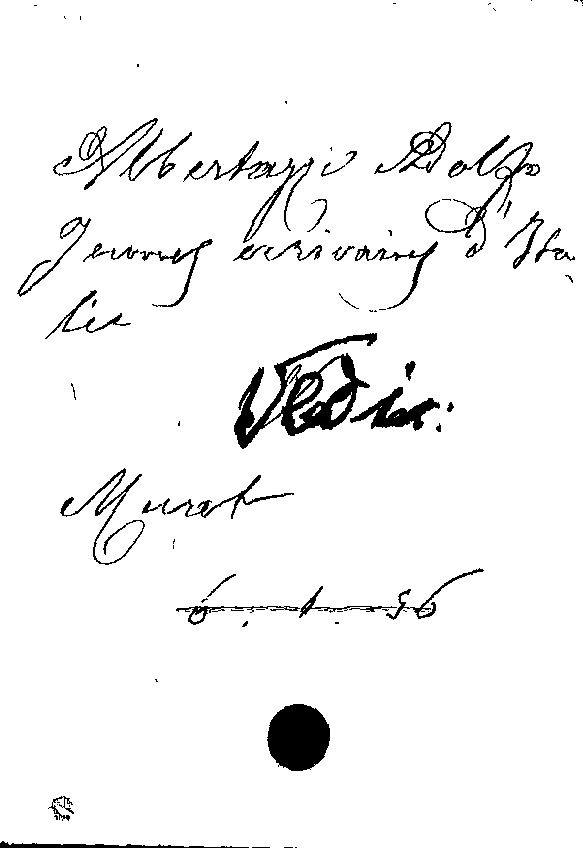 Albertazzi Adolfo
Jeunes écrivains d'Ita
lie
Vedi:
Murat
6.1.96